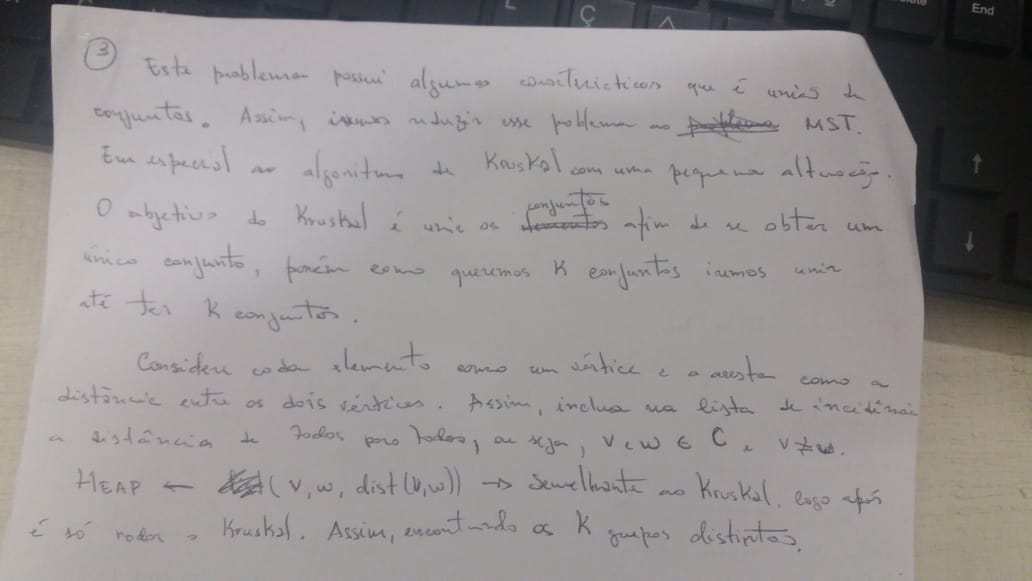 End
Ç
③ Este problema possui algumas características que é união de
conjuntos. Assim, iremos reduzir esse problema ao problema MST.
Em especial ao algoritmo de Kruskal com uma pequena alteração.
O objetivo do Kruskal é unir os elementos conjuntos afim de se obter um
único conjunto, porém como queremos K conjuntos iremos unir
até ter K conjuntos.
Considere cada elemento como um vértice e a aresta como a
distância entre os dois vértices. Assim, inclua na lista de incidência
a distância de todos para todos, ou seja, v e w ∈ C e v ≠ w.
HEAP ← (v, w, dist(v,w)) → Semelhante ao Kruskal, logo após
é só rodar o Kruskal. Assim, encontrando os K grupos distintos.